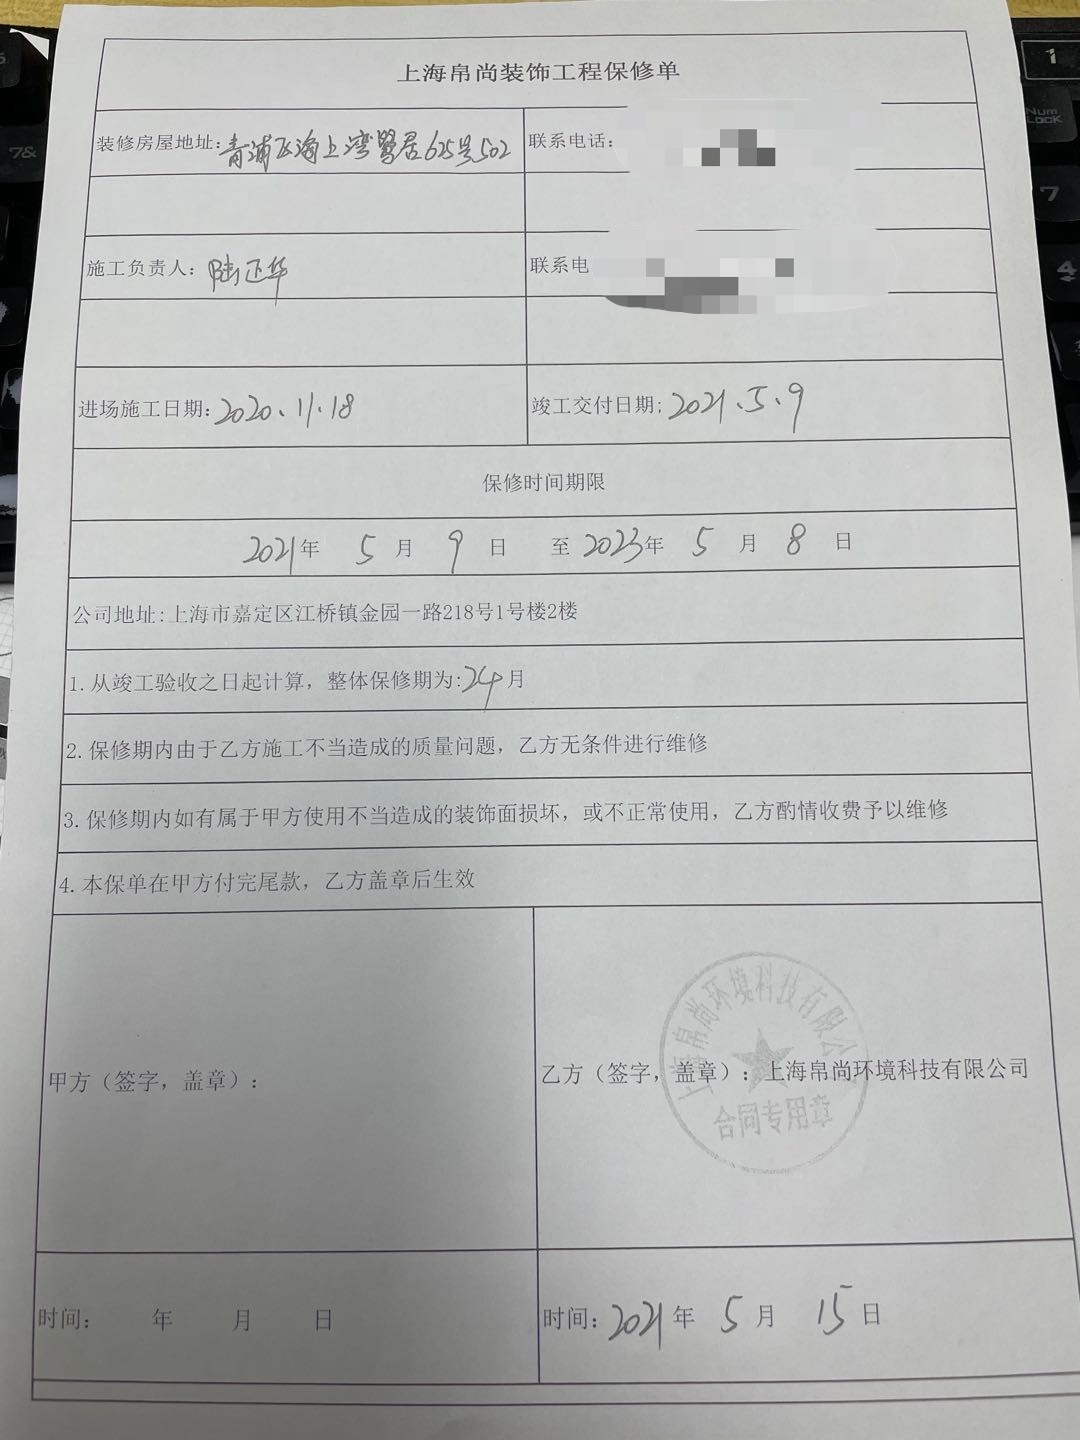 上海帛尚装饰工程保修单
装修房屋地址:青浦区海上湾馨居625号502
联系电话:
施工负责人:陆正华
联系电
进场施工日期:2020.11.18
竣工交付日期;2021.5.9
保修时间期限
2021年 5月 9日 至2023年 5月 8日
公司地址:上海市嘉定区江桥镇金园一路218号1号楼2楼
1.从竣工验收之日起计算,整体保修期为:24月
2.保修期内由于乙方施工不当造成的质量问题,乙方无条件进行维修
3.保修期内如有属于甲方使用不当造成的装饰面损坏,或不正常使用,乙方酌情收费予以维修
4.本保单在甲方付完尾款,乙方盖章后生效
甲方(签字,盖章):
乙方(签字,盖章):上海帛尚环境科技有限公司
上海帛尚环境科技有限公司
合同专用章
时间: 年 月 日
时间:2021年 5月 15日
1
Num
LOCK
7
4
7&